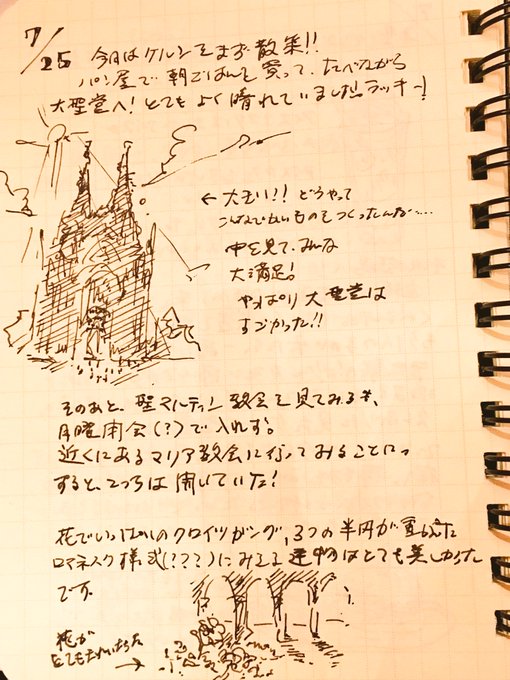 7/25 今日はケルンをまず散策!!
パン屋で朝ごはんを買って、たべながら
大聖堂へ！とてもよく晴れていました！ラッキー！
← 大きい!! どうやって
こんなでかいものをつくったんだ……
中を見て、みんな
大満足！
やっぱり大聖堂は
すごかった!!
そのあと、聖マルティン教会を見てみるも、
月曜閉会(?)で入れず。
近くにあるマリア教会に行ってみることに
すると、こっちは開いていた！
花でいっぱいのクロイツガング、3つの半円が重なった
ロマネスク様式(???)にみえる建物はとても美しかった
です。
花が
とてもきれいだった
→